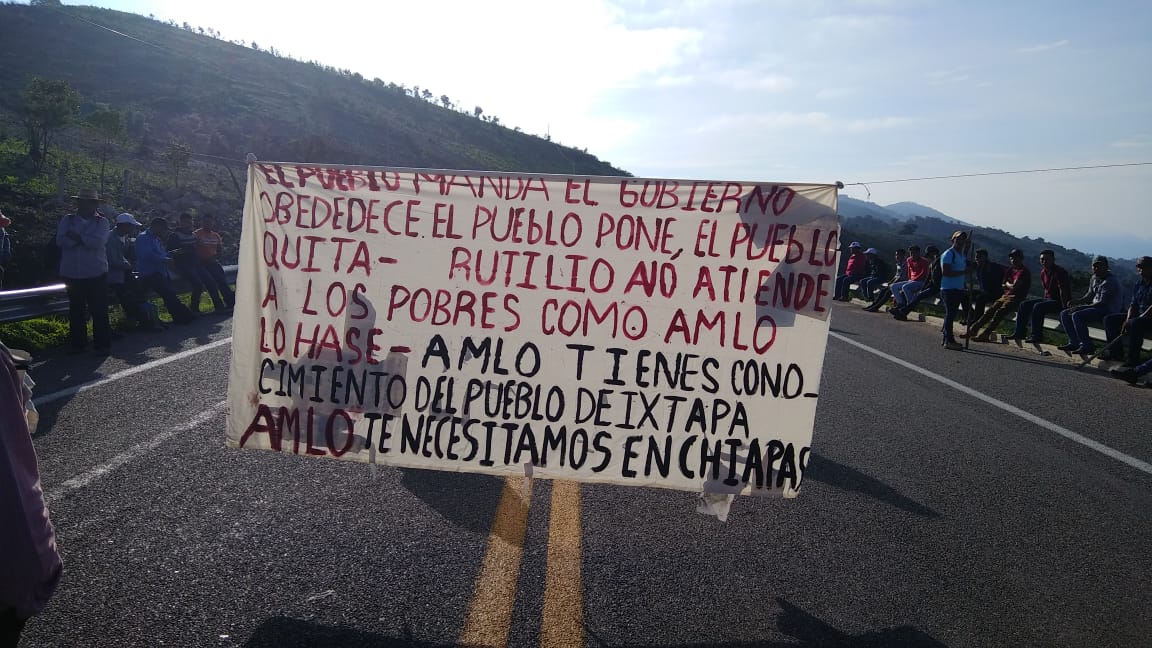 EL PUEBLO MANDA EL GOBIERNO
OBEDEDECE. EL PUEBLO PONE, EL PUEBLO
QUITA- RUTILIO NO ATIENDE
A LOS POBRES COMO AMLO
LO HASE- AMLO TIENES CONO-
CIMIENTO DEL PUEBLO DE IXTAPA
AMLO TE NECESITAMOS EN CHIAPAS